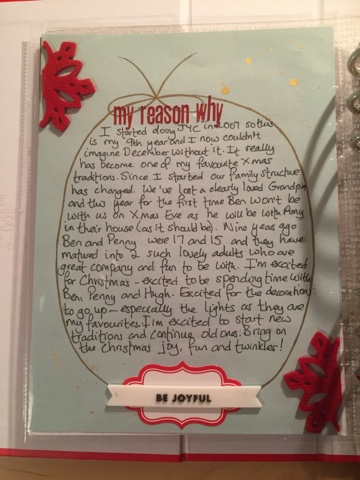 my reason why
I started doing JYC in 2007 so this
is my 9th year and I now couldn't
imagine December without it. It really
has become one of my favourite Xmas
traditions. Since I started our family structure
has changed. We've lost a dearly loved Grandpa
and this year for the first time Ben won't be
with us on Xmas Eve as he will be with Amy
in their house (as it should be). Nine years ago
Ben and Penny were 17 and 15 and they have
matured into 2 such lovely adults who are
great company and fun to be with. I'm excited
for Christmas - excited to be spending time with
Ben, Penny and Hugh. Excited for the decorations
to go up - especially the lights as they are
my favourites. I'm excited to start new
traditions and continue old one. Bring on
the Christmas Joy, fun and twinkles!
BE JOYFUL